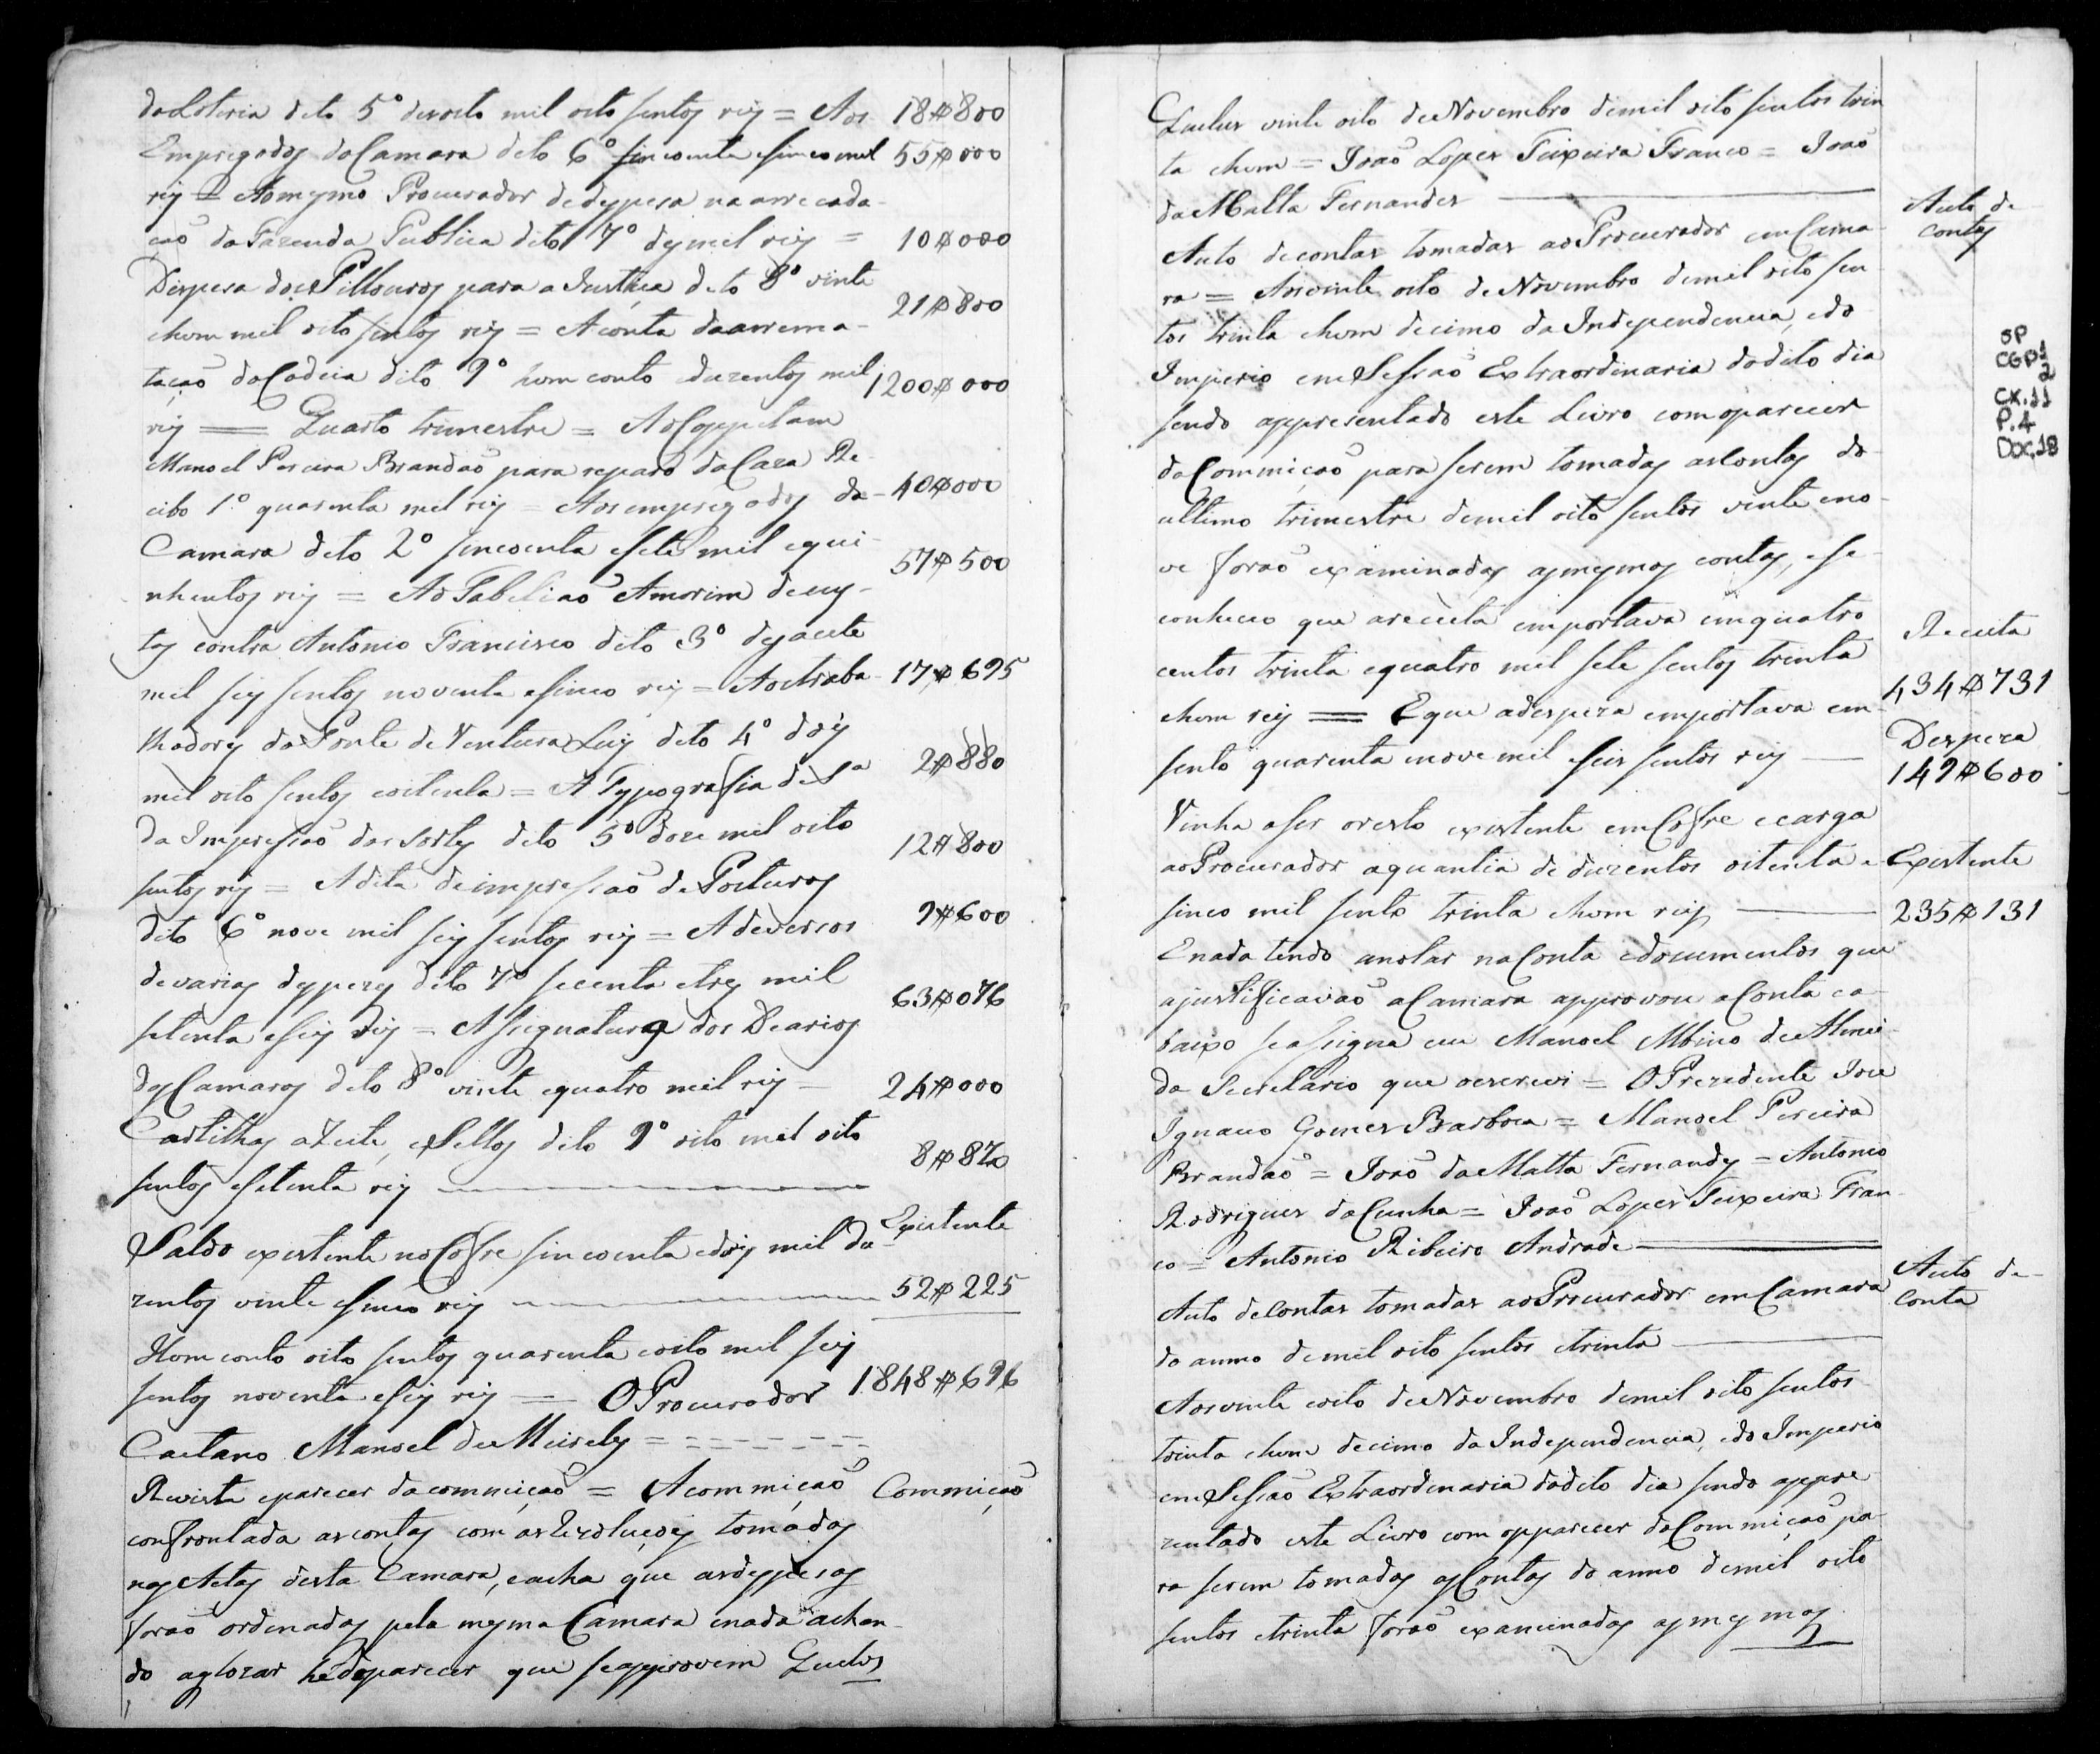 da Loteria dito 5º dezoito mil oito sentos reis = Aos 18$800
Empregados da Camara dito 6º sincoenta e sinco mil 55$000
reis = Ao mesmo Procurador de despesa na arrecada-
çaõ da Fazenda Publica dito 7º des mil reis = 10$000
Despesa dos Pillouros para a Justiça dito 8º vinte
e hum mil oito sentos reis = A conta da arrema- 21$800
taçaõ da Cadeia dito 9º hum conto e duzentos mil 1200$000
reis == Quarto trimestre = Ao Cappelam
Manoel Pereira Brandaõ para reparo da Caza Re-
cibo 1º quarenta mil reis = Aos empregados da- 40$000
Camara dito 2º sincoenta e sete mil e qui-
nhentos reis = Ao Tabeliaõ Amorim de cus- 57$500
tas contra Antonio Francisco dito 3º desacete
mil seis sentos noventa e sinco reis = Aos traba- 17$695
lhadores da Ponte de Ventura Luis dito 4º dois
mil oito sentos e oitenta = A Typografia de Sª 2$880
da Impressaõ das sortes dito 5º doze mil oito
sentos reis = A dita de impressaõ de Posturas 12$800
dito 6º nove mil seis sentos reis = A deversos 9$600
de varias despezas dito 7º secenta e tres mil
setenta e seis reis = Assignatura dos Dearios 63$076
das Camaras dito 8º vinte e quatro mil reis = 24$000
Cartilhas azeite, e Sellos dito 9º oito mil oito
sentos e setenta reis 8$870
Existente
Saldo existente no Cofre sincoenta e dois mil du-
zentos vinte e sinco reis 52$225
Hum conto oito sentos quarenta e oito mil seis
sentos noventa e seis reis == O Procurador 1848$696
Caetano Manoel de Meireles =
Revista e parecer da commiçaõ = A commiçaõ Commiçaõ
confrontada as contas com as Rezoluçois tomadas
nas Actas desta Camara, e acha que as despesas
foraõ ordenadas pela mesma Camara e nada achan-
do a glozar he de parecer que se approvem Quelus
Quelus vinte oito de Novembro de mil oito sentos trin
ta e hum = Joaõ Lopes Teixeira Franco = Joaõ
da Matta Fernandes
Auto de
contas
Auto de contas tomadas ao Procurador em Cama-
ra = Aos vinte oito de Novembro de mil oito sen-
tos trinta e hum decimo da Independencia, e do
Imperio em Sessaõ Extraordinaria do dito dia
sendo appresentado este Livro com o parecer
da Commiçaõ para serem tomadas as contas do
ultimo trimestre de mil oito sentos vinte e no-
ve foraõ examinadas as mesmas contas, e se
conheceo que a receita emportava em quatro
Receita
centos trinta e quatro mil sete sentos trinta
434$731
e hum reis == E que a despeza emportava em-
Despeza
sento quarenta e nove mil e seis sentos reis
149$600
Vinha a ser o resto existente em Cofre e carga
ao Procurador a quantia de duzentos oitenta e Existente
sinco mil sento trinta e hum reis 235$131
E nada tendo a notar na Conta e documentos que
a justificavaõ a Camara approvou a Conta e a-
baixo se assigna eu Manoel Albino de Almei-
da Secretario que o escrevi = O Prezedente Jose
Ignacio Gomes Barboza = Manoel Pereira
Brandaõ = Joaõ da Matta Fernandes = Antonio
Rodrigues da Cunha = Joaõ Lopes Teixeira Fran-
co = Antonio Ribeiro Andrade
Auto de
conta
Auto de Contas tomadas ao Procurador em Camara
do anno de mil oito sentos e trinta
Aos vinte e oito de Novembro de mil oito sentos
trinta e hum decimo da Independencia, e do Imperio
em Sessaõ Extraordinaria do dito dia sendo appre-
zentado este Livro com o pparecer da Commiçaõ pa-
ra serem tomadas as Contas do anno de mil oito
sentos e trinta foraõ examinadas as mesmas
SP
CGP1
2
CX.11
P.4
DOC.18